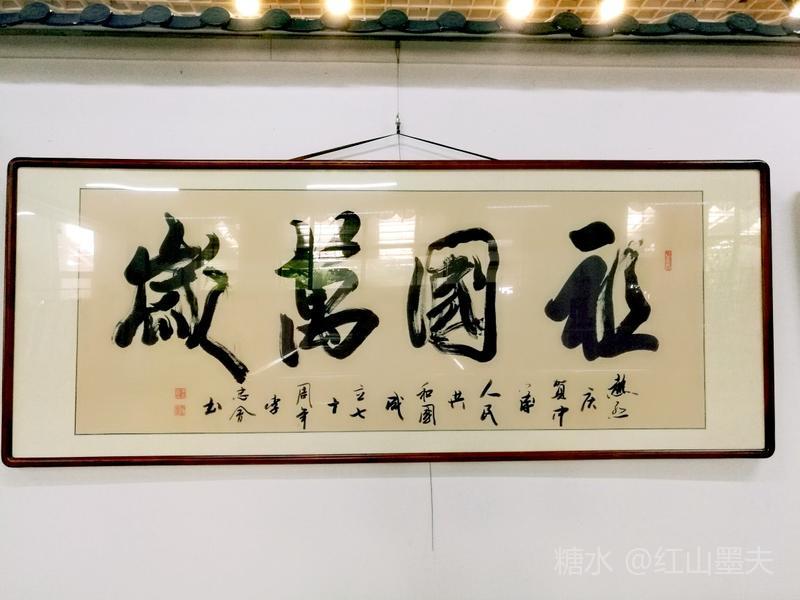 祖國萬歲
熱烈慶賀中華人民共和國成立七十周年李志會书
糖水 @红山墨夫